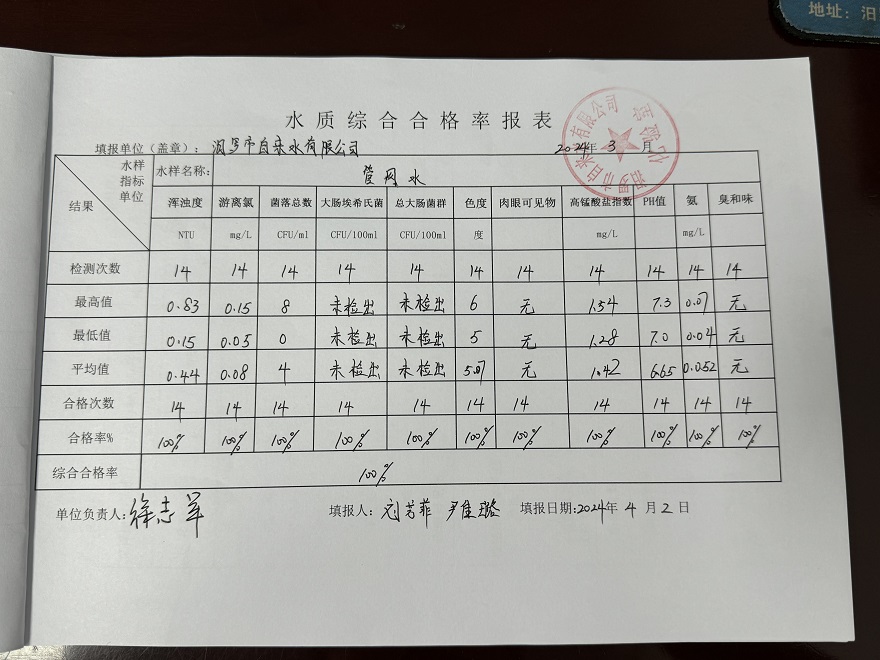 地址：汨
水质综合合格率报表
填报单位（盖章）：汨罗市自来水有限公司 2024年 3 月
水样 指标 单位 结果 水样名称： 管网水
浑浊度 游离氯 菌落总数 大肠埃希氏菌 总大肠菌群 色度 肉眼可见物 高锰酸盐指数 PH值 氨 臭和味
NTU mg/L CFU/ml CFU/100ml CFU/100ml 度 mg/L mg/L
检测次数 14 14 14 14 14 14 14 14 14 14 14
最高值 0.83 0.15 8 未检出 未检出 6 无 1.54 7.3 0.07 无
最低值 0.15 0.05 0 未检出 未检出 5 无 1.28 7.0 0.04 无
平均值 0.44 0.08 4 未检出 未检出 5.07 无 1.42 6.65 0.052 无
合格次数 14 14 14 14 14 14 14 14 14 14 14
合格率% 100% 100% 100% 100% 100% 100% 100% 100% 100% 100% 100%
综合合格率 100%
单位负责人：徐志军 填报人：刘芳菲 尹佳璐 填报日期：2024年 4 月 2 日